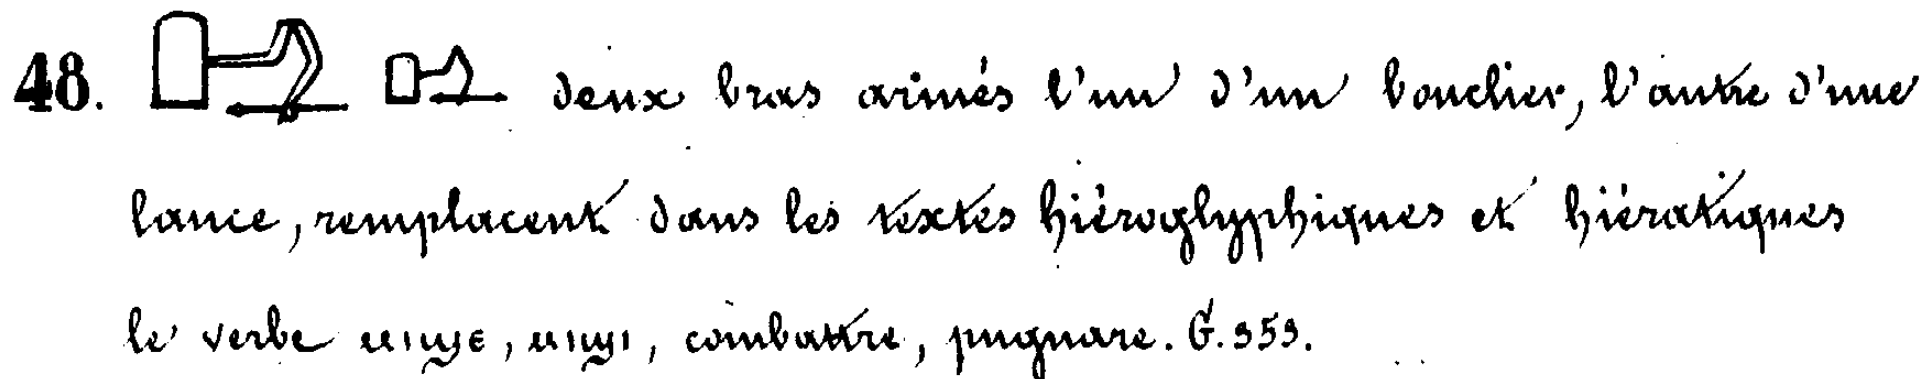 48. deux bras armés l'un d'un bouclier, l'autre d'une
lance, remplacent dans les textes hiéroglyphiques et hiératiques
le verbe ⲙⲓϣⲉ, ⲙⲓϣⲓ, combattre, pugnare. G. 353.